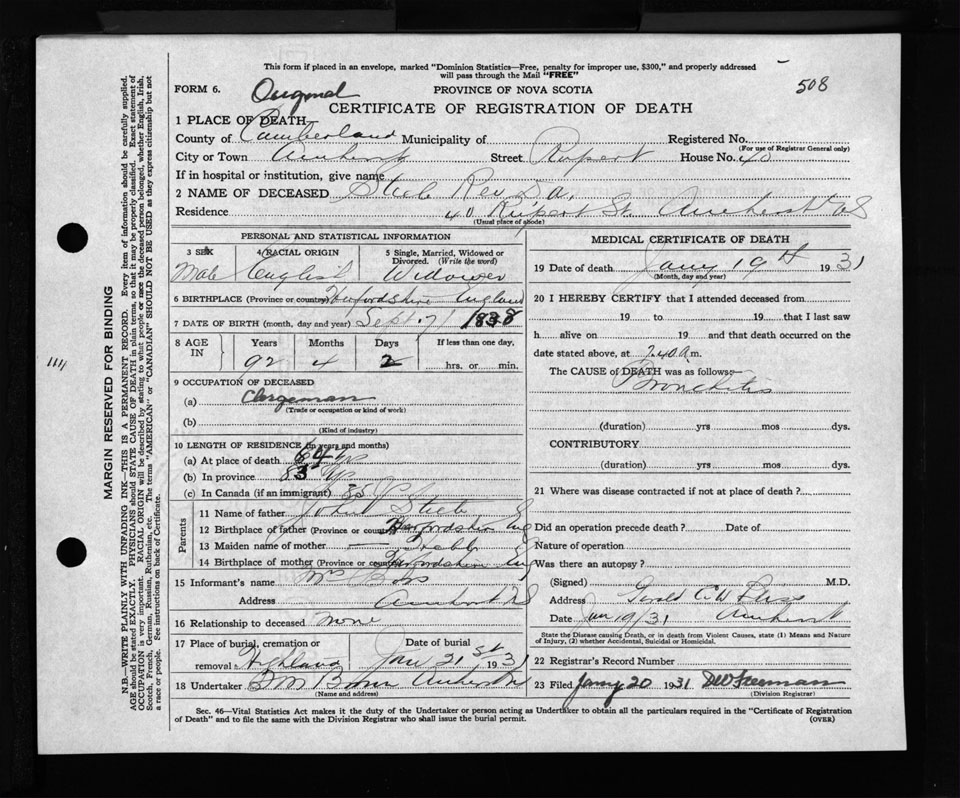 This form if placed in an envelope, marked "Dominion Statistics—Free, penalty for improper use, $300," and properly addressed
will pass through the Mail "FREE"
508
FORM 6. Original PROVINCE OF NOVA SCOTIA
CERTIFICATE OF REGISTRATION OF DEATH
1 PLACE OF DEATH
County of Cumberland Municipality of Registered No.
(For use of Registrar General only)
City or Town Amherst Street Rupert House No. 40
If in hospital or institution, give name
2 NAME OF DECEASED Steele Rev. D.A.
Residence 40 Rupert St. Amherst NS
(Usual place of abode)
PERSONAL AND STATISTICAL INFORMATION
3 SEX 4 RACIAL ORIGIN 5 Single, Married, Widowed or Divorced. (Write the word)
Male English Widower
6 BIRTHPLACE (Province or country) Herfordshire England
7 DATE OF BIRTH (month, day and year) Sept 17 1838
8 AGE IN Years Months Days If less than one day,
92 4 2 hrs. or min.
9 OCCUPATION OF DECEASED
(a) Clergeman
(Trade or occupation or kind of work)
(b)
(Kind of industry)
10 LENGTH OF RESIDENCE (in years and months)
(a) At place of death 64 yrs
(b) In province 83 yrs
(c) In Canada (if an immigrant) 85
Parents
11 Name of father John Steele
12 Birthplace of father (Province or country) Herfordshire Eng
13 Maiden name of mother
14 Birthplace of mother (Province or country) Herfordshire Eng
15 Informant's name Mrs
Address Amherst NS
16 Relationship to deceased none
17 Place of burial, cremation or removal Highland Date of burial Jan 21st, 1931
18 Undertaker Amherst NS
(Name and address)
MEDICAL CERTIFICATE OF DEATH
19 Date of death Jany 19th 1931
(Month, day and year)
20 I HEREBY CERTIFY that I attended deceased from
19 to 19 that I last saw
h alive on 19 and that death occurred on
date stated above, at 7.40 a.m.
The CAUSE of DEATH was as follows:
Bronchitis
(duration) yrs mos dys.
CONTRIBUTORY
(duration) yrs mos dys.
21 Where was disease contracted if not at place of death?
Did an operation precede death? Date of
Nature of operation
Was there an autopsy?
(Signed) Gerald C.W. M.D.
Address Amherst
Date Jan 19/31
State the Disease causing Death, or in death from Violent Causes, state (1) Means and Nature
of Injury, (2) whether Accidental, Suicidal or Homicidal.
22 Registrar's Record Number
23 Filed Jany 20 1931 Freeman
(Division Registrar)
Sec. 46—Vital Statistics Act makes it the duty of the Undertaker or person acting as Undertaker to obtain all the particulars required in the "Certificate of Registration
of Death" and to file the same with the Division Registrar who shall issue the burial permit. (OVER)
MARGIN RESERVED FOR BINDING
N.B—WRITE PLAINLY WITH UNFADING INK—THIS IS A PERMANENT RECORD. Every item of information should be carefully supplied.
AGE should be stated EXACTLY. PHYSICIANS should STATE CAUSE OF DEATH in plain terms, so that it may be properly classified. Exact statement of
OCCUPATION is very important. RACIAL ORIGIN will be described by stating to what people or race the deceased person belonged, whether English, Irish,
Scotch, French, German, Russian, Ruthenian, etc. The terms "AMERICAN" or "CANADIAN" SHOULD NOT BE USED as they express citizenship but not
a race or people. See instructions on back of Certificate.